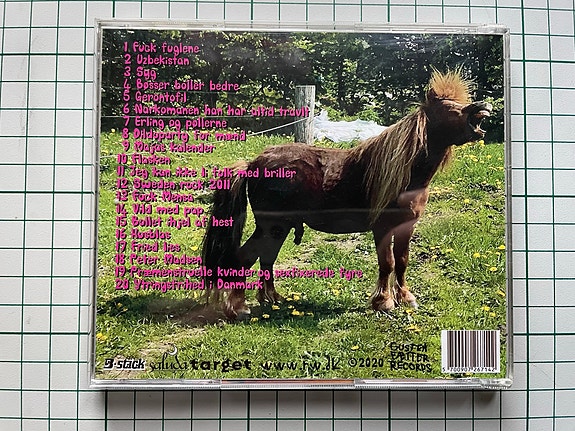 1 Fuck fuglene
2 Uzbekistan
3 Syg
4 Bøsser boller bedre
5 Gerontofil
6 Narkomanen han har altid travlt
7 Erling og pøllerne
8 Dildoparty for mænd
9 Majas kalender
10 Flasken
11 Jeg kan ikke li folk med briller
12 Sweden rock 2011
13 Fuck Mensa
14 Vild med pap
15 Bollet ihjel af hest
16 Husblas
17 Fried lies
18 Peter Madsen
19 Præmenstruelle kvinder og sexfixerede fyre
20 Ytringsfrihed i Danmark
target www.rw.dk ©2020
RECORDS
5 700907 267142